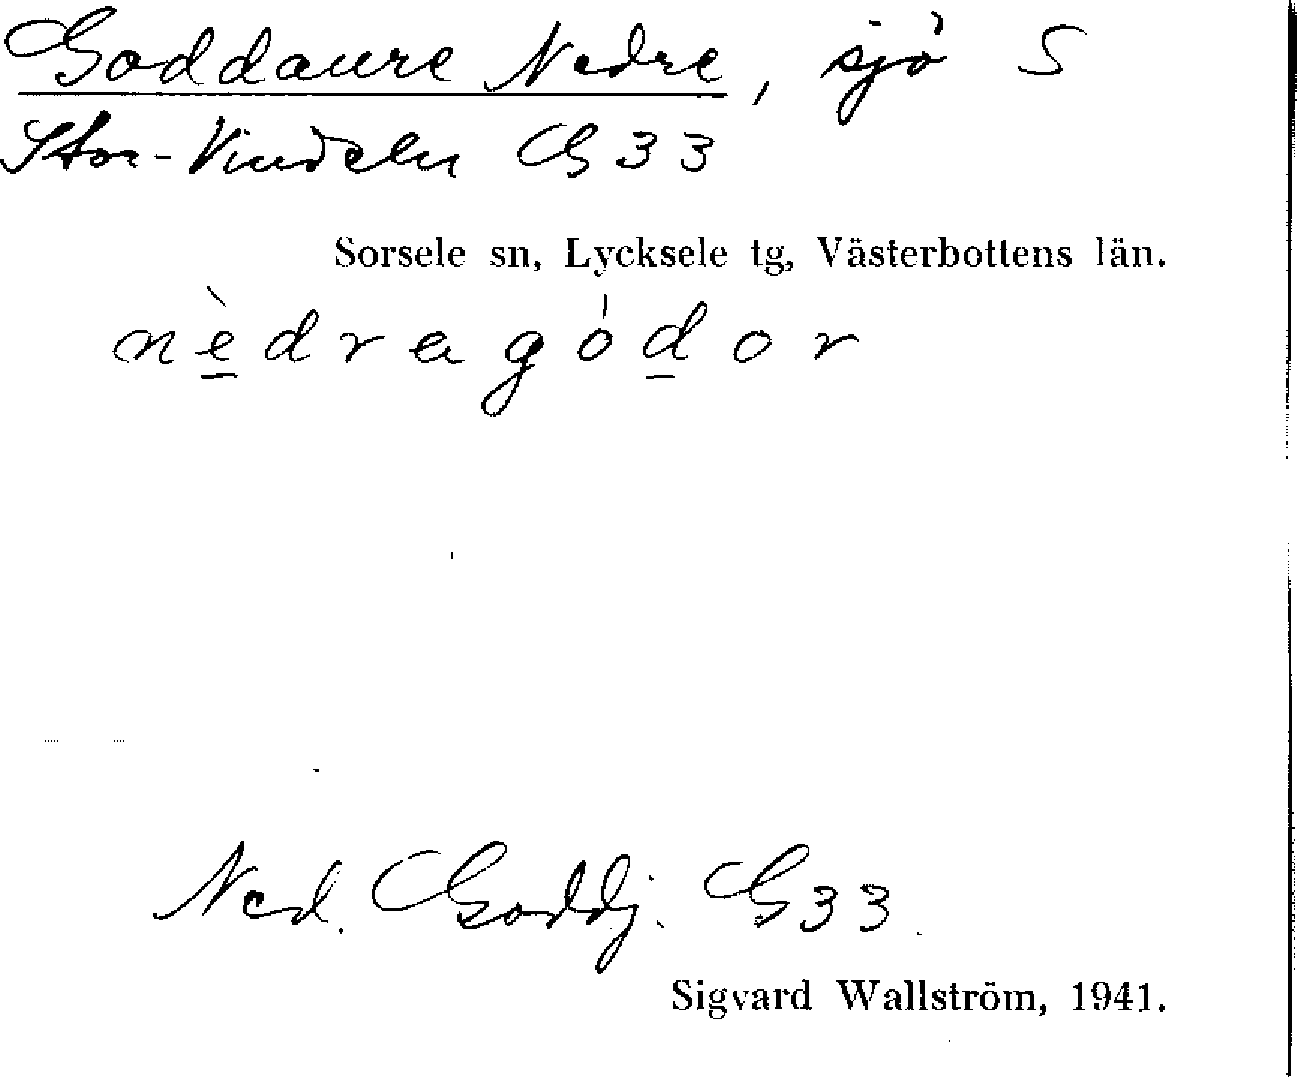 Goddaure Nedre, sjö S
Stor-Vindeln G33
Sorsele sn, Lycksele tg, Västerbottens län.
nèdragódor
Ned. Goddj. G33
Sigvard Wallström, 1941.